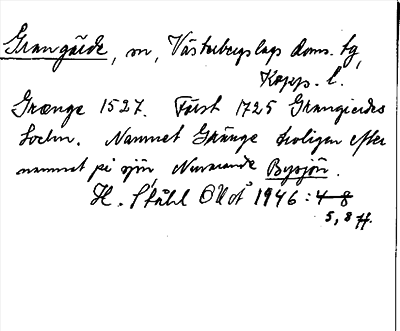 Grangärde, sn, Västerbergslags doms. tg,
Kopp. l.
Grænge 1527. Först 1725 Grangierdes
Sochn. Namnet Gränge troligen efter
namnet på sjön, Nuvarande Bysjön.
H. Ståhl 1946: 4-8
5, 8 ff.